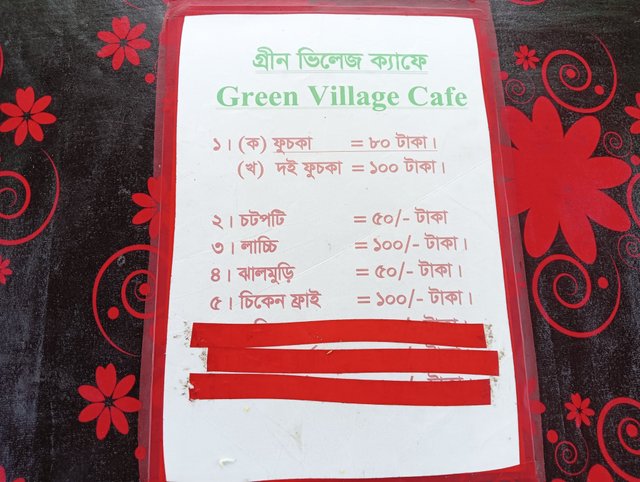 গ্রীন ভিলেজ ক্যাফে
Green Village Cafe
১। (ক) ফুচকা = ৮০ টাকা।
(খ) দই ফুচকা = ১০০ টাকা।
২। চটপটি = ৫০/- টাকা
৩। লাচ্চি = ১০০/- টাকা।
৪। ঝালমুড়ি = ৫০/- টাকা।
৫। চিকেন ফ্রাই = ১০০/- টাকা।